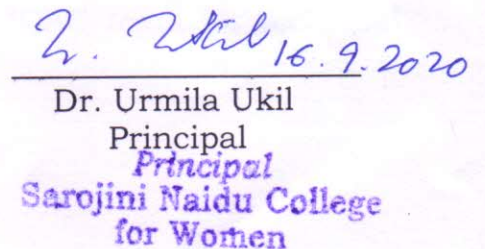 U. Ukil 16.9.2020
Dr. Urmila Ukil
Principal
Principal
Sarojini Naidu College
for Women